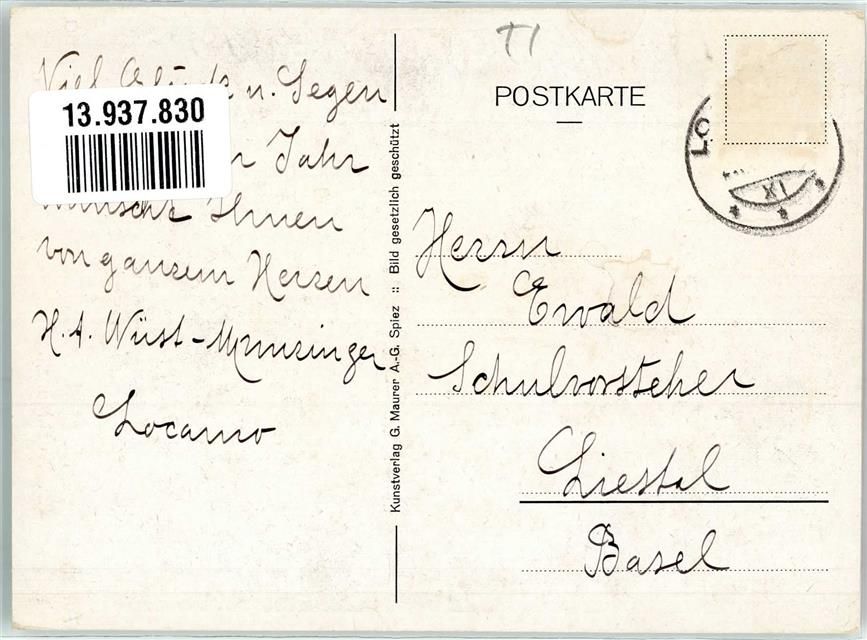 Viel Glück u. Segen
Jahr
wünscht Ihnen
von ganzem Herzen
H. A. Wüst-Munzinger
Locarno
13.937.830
Kunstverlag G. Maurer A.-G. Spiez :: Bild gesetzlich geschützt
TI
POSTKARTE
LO
XI
Herrn
Ewald
Schulvorsteher
Liestal
Basel